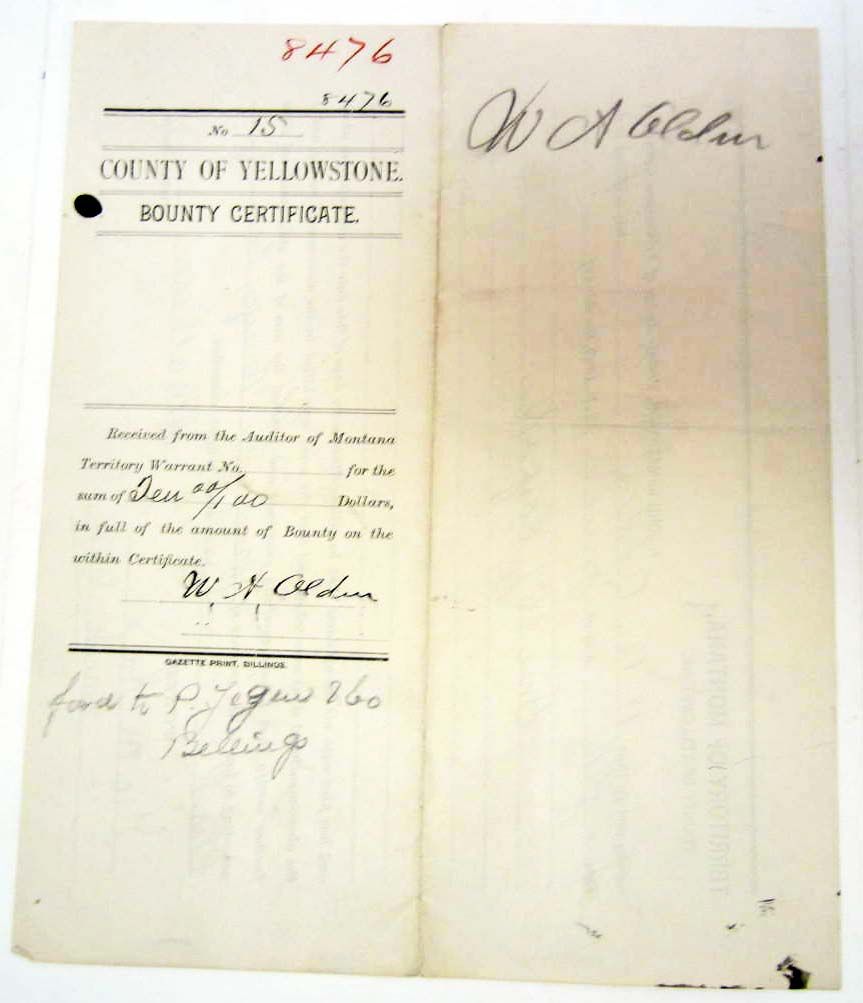 8476
8476
No 15
COUNTY OF YELLOWSTONE.
BOUNTY CERTIFICATE.
Received from the Auditor of Montana
Territory Warrant No. for the
sum of Ten 00/100 Dollars,
in full of the amount of Bounty on the
within Certificate.
W. A. Olden
GAZETTE PRINT, BILLINGS.
to P. Yegen &Co
Billings
W A Olden
TERRITORY OF MONTANA,